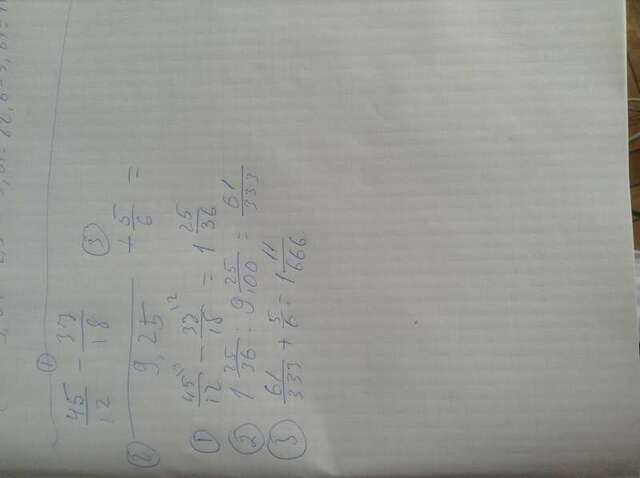 ① ③
45/12 − 37/18
② 9,25 + 5/6 =
① 45/12 − 37/18 = 1 25/36
② 1 25/36 : 9 25/100 = 61/333
③ 61/333 + 5/6 = 1 11/666